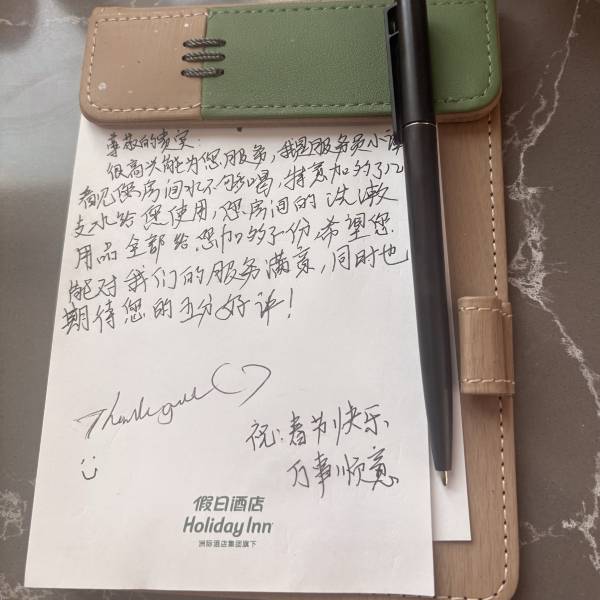 尊敬的贵宾:
很高兴能为您服务,我是服务员小谭
看见您房间水不够喝,特意加多了几
支水给您使用,您房间的洗漱
用品全部给您加多了一份,希望您
能对我们的服务满意,同时也
期待您的五分好评!
Thank you
祝:春节快乐
万事顺意
假日酒店
Holiday Inn
洲际酒店集团旗下